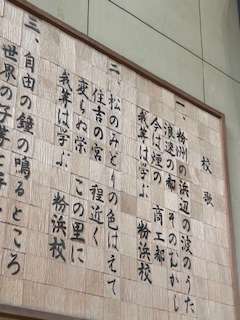 校歌
一、粉州の浜辺の波のうた
浪速の都 そのむかし
今は煙の 商工都
我等は学ぶ 粉浜校
二、松のみどりの色はえて
住吉の宮 程近く
変らぬ栄 この里に
我等は学ぶ 粉浜校
三、自由の鐘の鳴るところ
世界の子等と手